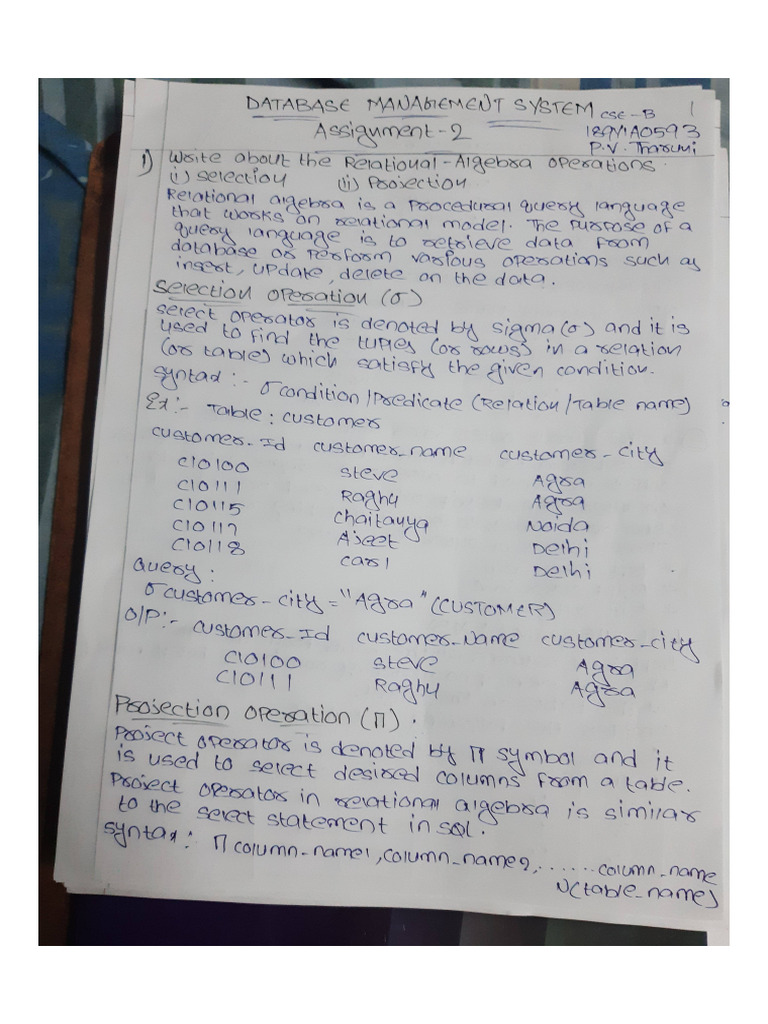 DATABASE MANAGEMENT SYSTEM CSE-B 1
Assignment-2 189Y1A0593
P.V. Tharuni
1) Write about the Relational-Algebra operations.
i) selection (ii) Projection
Relational algebra is a procedural query language
that works on relational model. The purpose of a
query language is to retrieve data from
database or perform various operations such as
insert, update, delete on the data.
Selection operation (σ)
select operator is denoted by sigma(σ) and it is
used to find the tuples (or rows) in a relation
(or table) which satisfy the given condition.
syntax :- σ condition/Predicate (Relation/Table name)
Ex:- Table: customers
customer-Id customer_name customer-city
C10100 Steve Agra
C10111 Raghu Agra
C10115 Chaitanya Noida
C10117 Ajeet Delhi
C10118 carl Delhi
Query:
σ customer-city="Agra"(CUSTOMER)
O/P:- customer-Id customer-Name customer-city
C10100 Steve Agra
C10111 Raghu Agra
Projection operation (Π).
Project operator is denoted by Π symbol and it
is used to select desired columns from a table.
Project operator in relational algebra is similar
to the select statement in SQL.
syntax: Π column_name1, column_name2, ...... column_name
N(table_name)